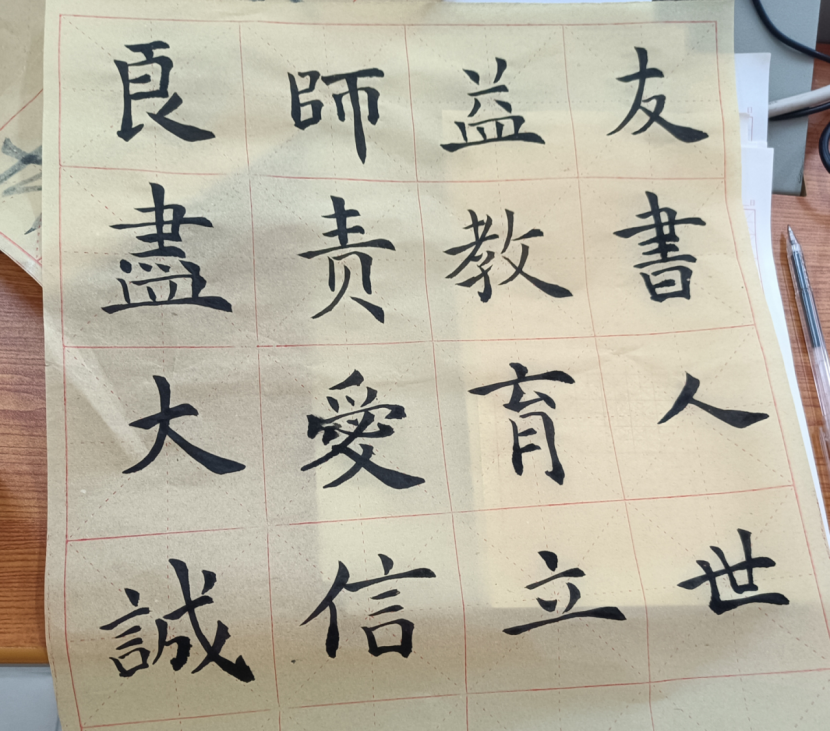 良師益友
盡责教書
大愛育人
誠信立世